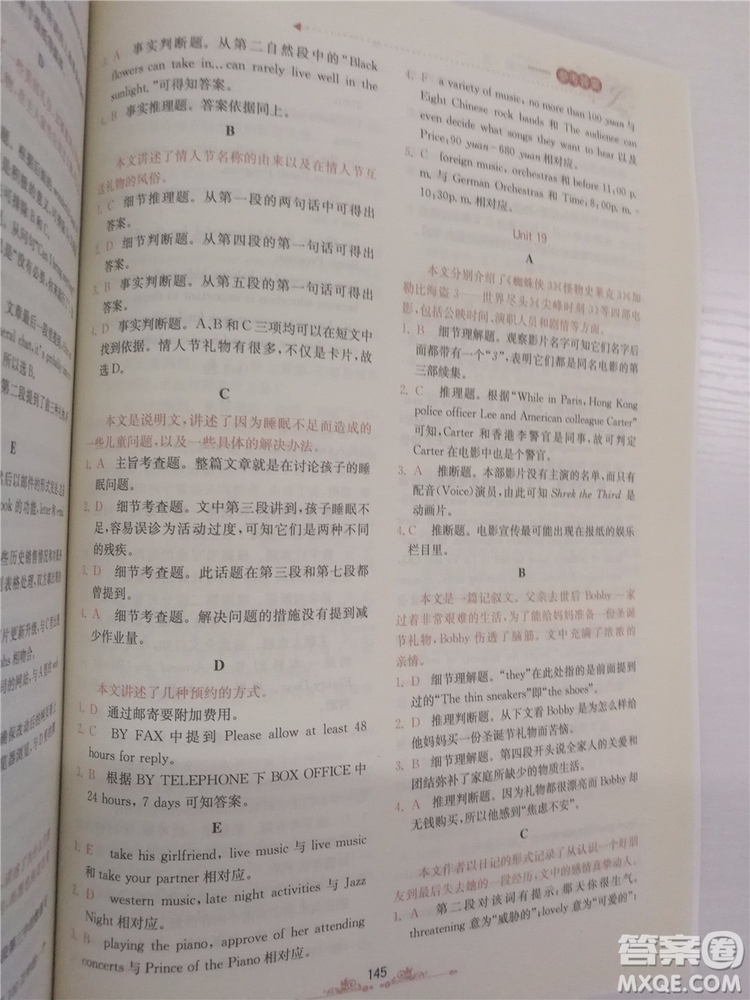 参考答案
3. A 事实判断题。从第二自然段中的“Black
flowers can take in... can rarely live well in the
sunlight.”可得知答案。
4. B 事实推理题。答案依据同上。
B
本文讲述了情人节名称的由来以及在情人节互
送礼物的风俗。
1. C 细节推理题。从第一段的两句话中可得出
答案。
2. D 细节判断题。从第四段的第一句话可得出
答案。
3. A 事实判断题。从第五段的第一句话可得出
答案。
4. D 事实判断题。A、B和C三项均可以在短文中
找到依据。情人节礼物有很多,不仅是卡片,故
选D。
C
本文是说明文,讲述了因为睡眠不足而造成的
一些儿童问题,以及一些具体的解决办法。
1. A 主旨考查题。整篇文章就是在讨论孩子的睡
眠问题。
2. D 细节考查题。文中第三段讲到,孩子睡眠不
足,容易误诊为活动过度,可知它们是两种不同
的残疾。
3. D 细节考查题。此话题在第三段和第七段都
曾提到。
4. A 细节考查题。解决问题的措施没有提到减
少作业量。
D
本文讲述了几种预约的方式。
1. D 通过邮寄要附加费用。
2. C BY FAX 中提到 Please allow at least 48
hours for reply.
3. B 根据 BY TELEPHONE 下 BOX OFFICE 中
24 hours, 7 days 可知答案。
E
1. E take his girlfriend, live music 与 live music
和 take your partner 相对应。
2. D western music, late night activities 与 Jazz
Night 相对应。
3. B playing the piano, approve of her attending
concerts 与 Prince of the Piano 相对应。
4. F a variety of music, no more than 100 yuan 与
Eight Chinese rock bands 和 The audience can
even decide what songs they want to hear 以及
Price; 90 yuan－680 yuan 相对应。
5. C foreign music, orchestra 和 before 11;00 p.
m. 与 German Orchestras 和 Time; 8;00 p. m. -
10;30p. m. 相对应。
Unit 19
A
本文分别介绍了《蜘蛛侠3》《怪物史莱克3》《加
勒比海盗3——世界尽头》《尖峰时刻3》等四部电
影,包括公映时间、演职人员和剧情等方面。
1. B 细节理解题。观察影片名字可知它们名字后
面都带有一个“3”,表明它们都是同名电影的第
三部续集。
2. C 推理题。根据“While in Paris, Hong Kong
police officer Lee and American colleague Carter”
可知,Carter 和香港李警官是同事,故可判定
Carter 在电影中也是个警官。
3. A 推断题。本部影片没有主演的名单,而只有
配音(Voice)演员,由此可知 Shrek the Third 是
动画片。
4. C 推断题。电影宣传最可能出现在报纸的娱乐
栏目里。
B
本文是一篇记叙文。父亲去世后 Bobby 一家
过着非常艰难的生活,为了能给妈妈准备一份圣诞
节礼物,Bobby 伤透了脑筋。文中充满了浓浓的
亲情。
1. D 细节理解题。“they”在此处指的是前面提到
过的“The thin sneakers”即“the shoes”。
2. D 推理判断题。从下文看 Bobby 是因为想给
他妈妈买一份圣诞节礼物而苦恼。
3. B 细节理解题。第四段开头说全家人的关爱和
团结弥补了家庭所缺少的物质生活。
4. A 推理判断题。因为礼物都很漂亮而 Bobby 却
无钱购买,所以他感到“焦虑不安”。
C
本文作者以日记的形式记录了从认识一个好朋
友到最后失去她的一段经历,文中的感情真挚动人。
1. A 第二段对该词有提示:那天你很生气。
threatening 意为“威胁的”;lovely 意为“可爱的”;
145
答案圈
MXQE.COM